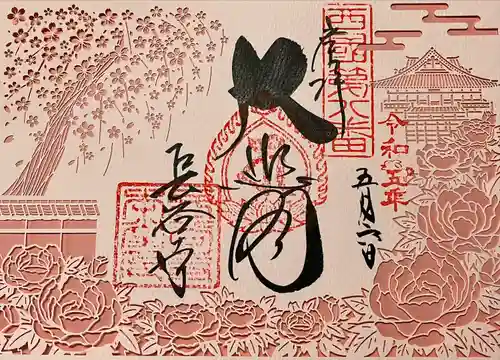 令和五年
五月六日
西國第八番
奉拝
大悲閣
長谷寺